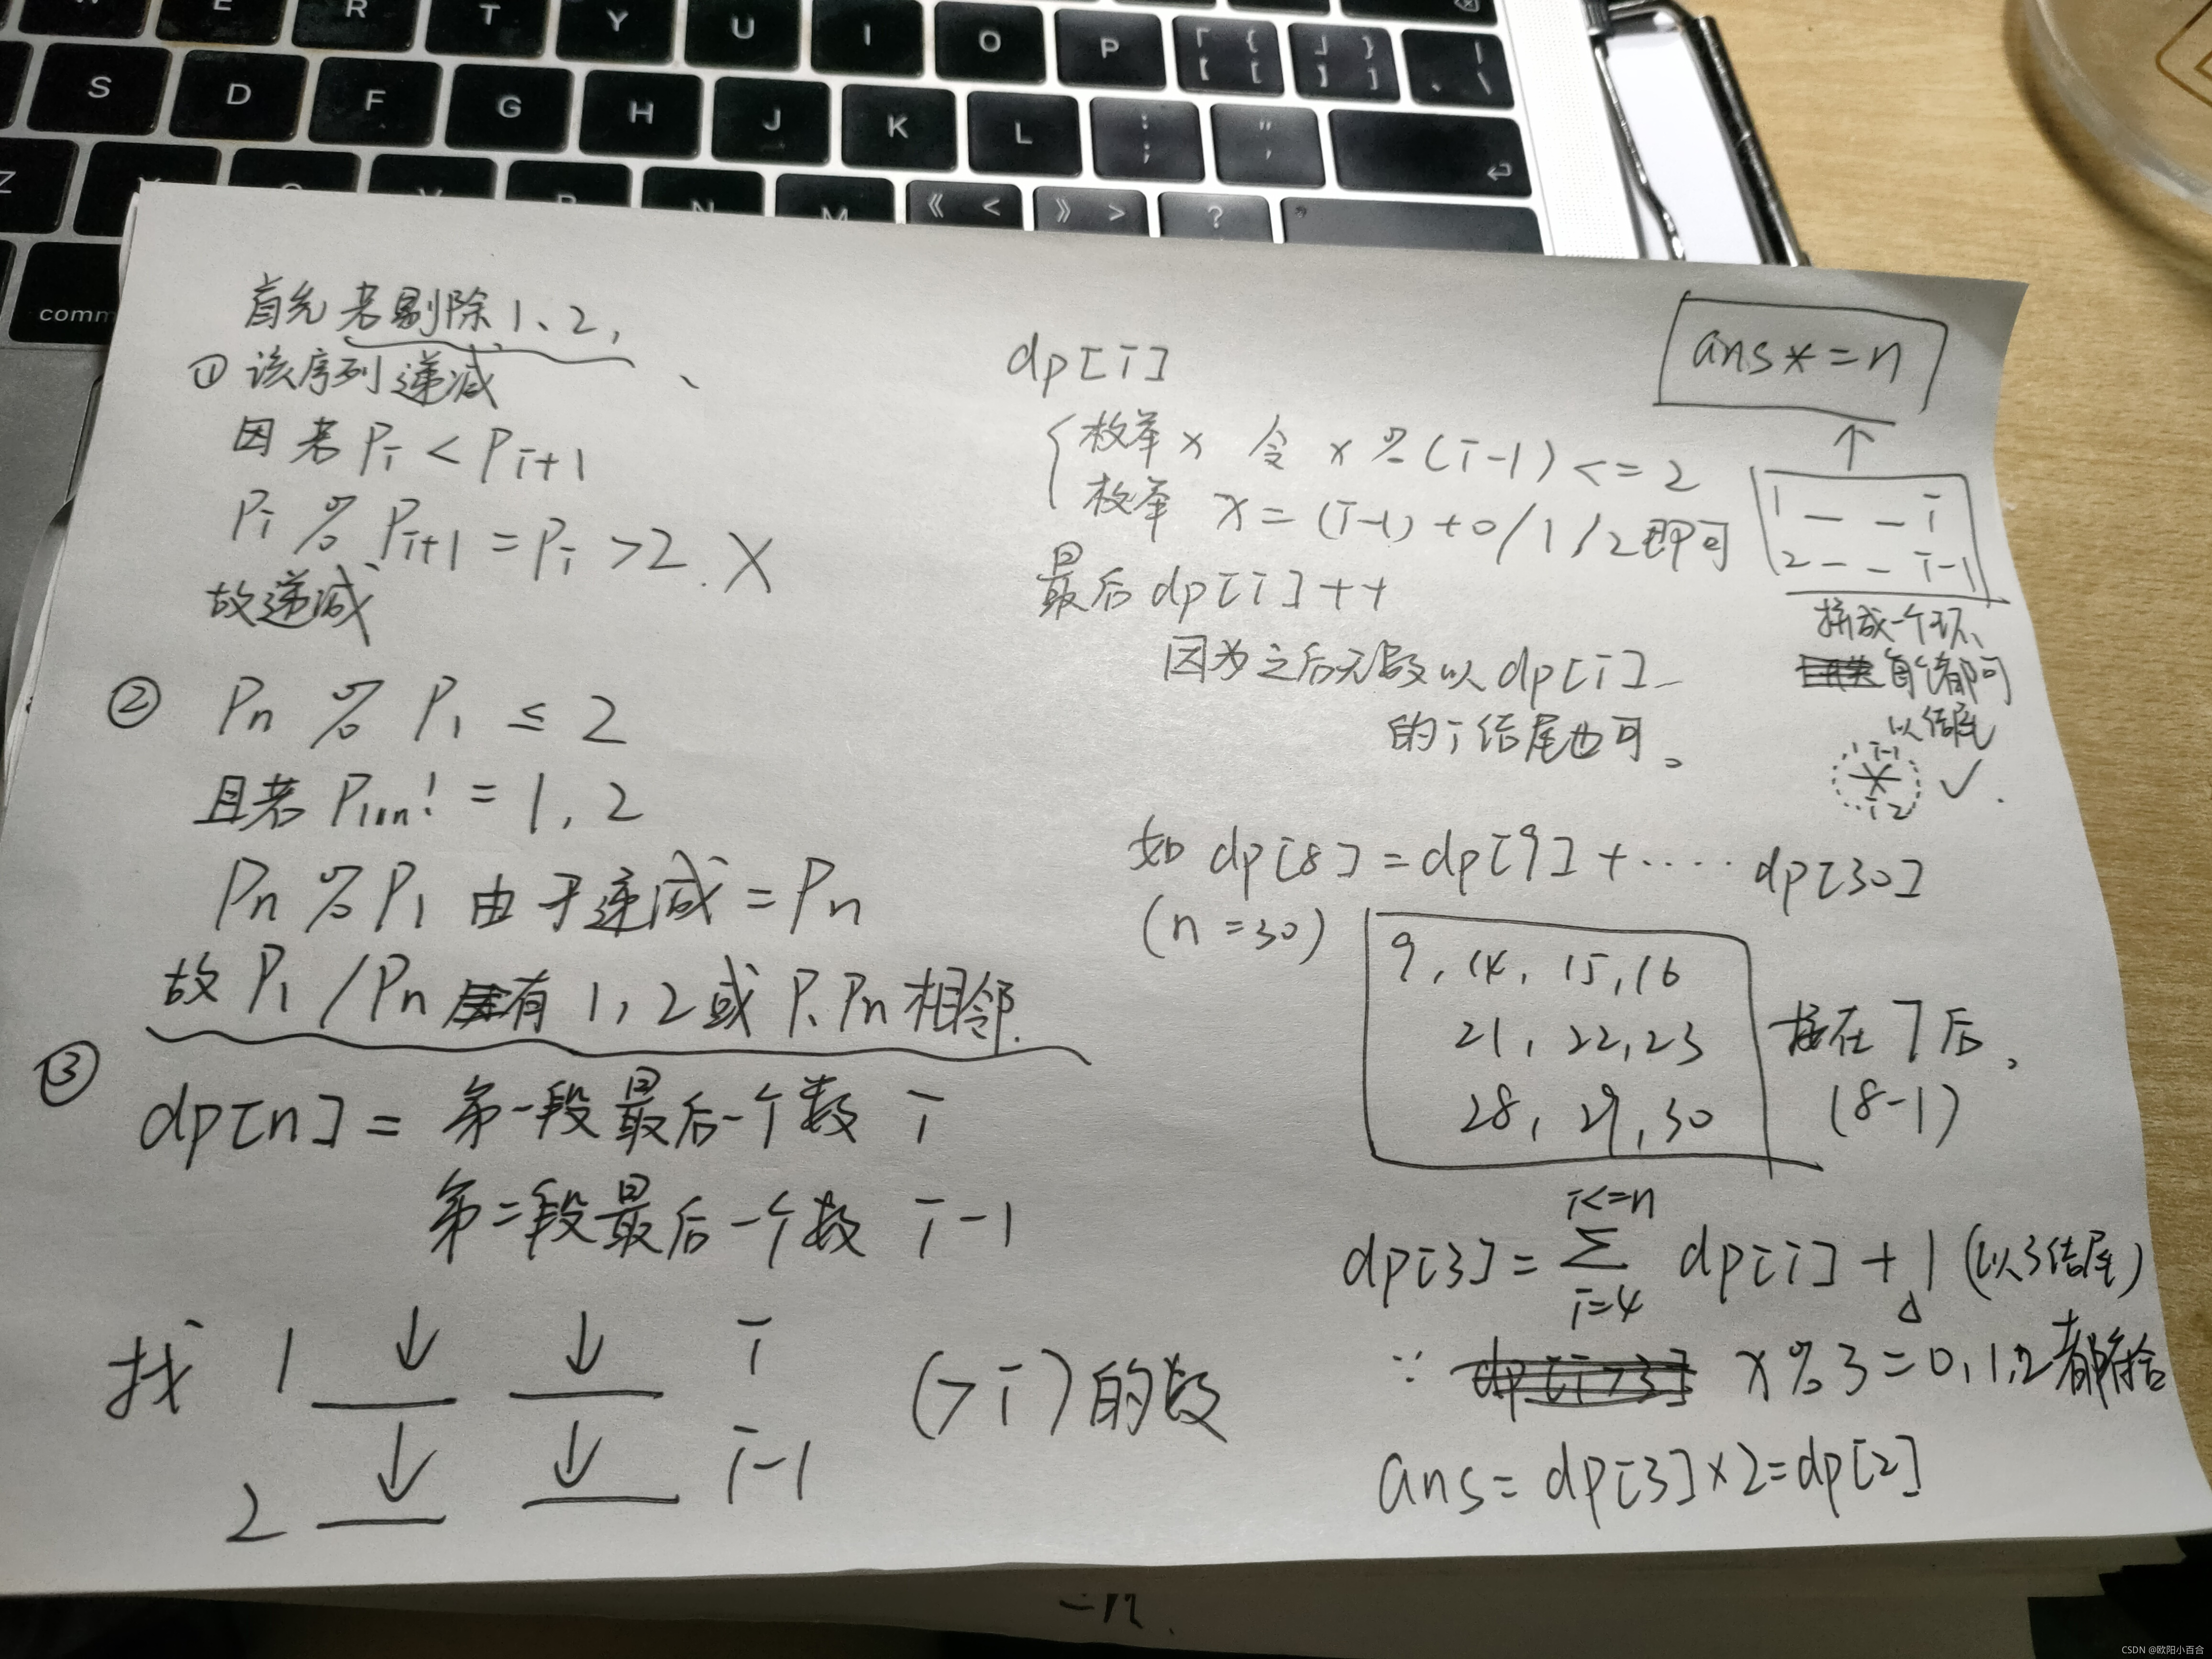 W E R T Y U I O P 「 { 【 [ 」 } 】 ] | 、 \
S D F G H J K L : ; " ' 
Z V B N M 《 < 》 > ?
comm
首先若剔除1、2,
① 该序列递减
因若 Pi < Pi+1
Pi % Pi+1 = Pi >2. X
故递减
② Pn % P1 ≤ 2
且若 P1,n != 1, 2
Pn % P1 由于递减 = Pn
故 P1 / Pn 有 1, 2 或 P1 Pn 相邻.
③ dp[n] = 第一段最后一个数 i
第二段最后一个数 i-1
找 1 ↓ ↓ i (>i)的数
2 ↓ ↓ i-1
dp[i]
枚举 x 令 x % (i-1) <= 2
枚举 x = (i-1) + 0/1/2 即可
最后 dp[i]++
因为之后无数以 dp[i]
的 i 结尾也可。
ans * = n
↑
1 — — i
2 — — i-1
拼成一个环,
都可
以结尾
i-1
i 2
✓.
如 dp[8] = dp[9] + ····· dp[30]
(n = 30)
9, 14, 15, 16
21, 22, 23
28, 29, 30
接在 7 后,
(8-1)
i<=n
dp[3] = Σ dp[i] + 1 (以3结尾)
i=4
∵ dp[i>3] x % 3 = 0, 1, 2 都符合
ans = dp[3] × 2 = dp[2]
CSDN @欧阳小百合